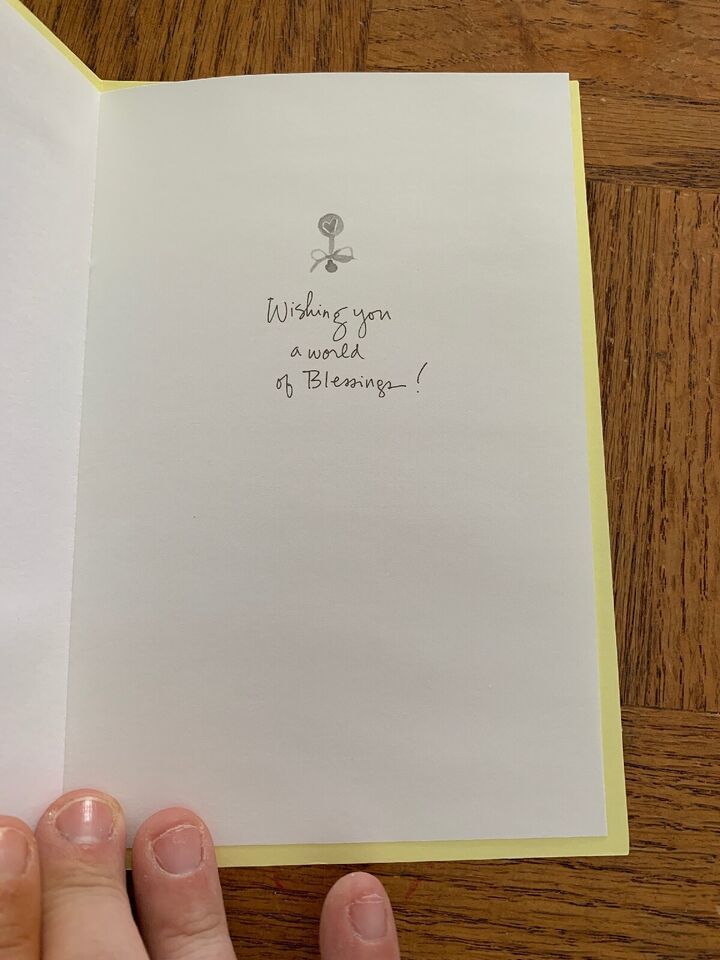 Wishing you
a world
of Blessings!